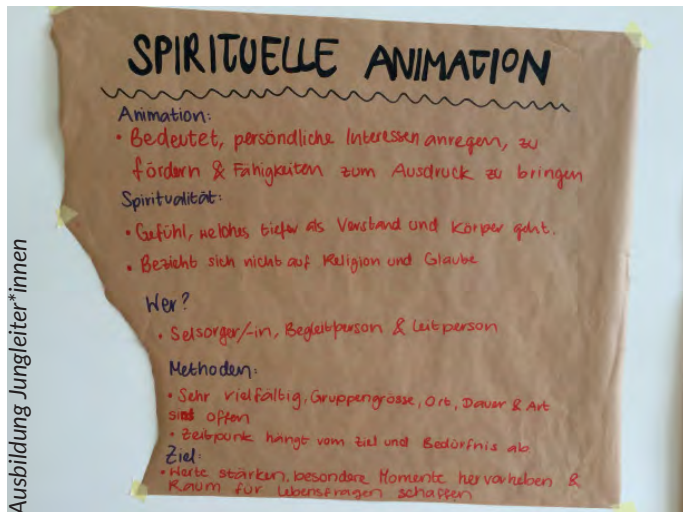 SPIRITUELLE ANIMATION
Animation:
• Bedeutet, persöndliche Interessen anregen, zu
fördern & Fähigkeiten zum Ausdruck zu bringen
Spiritualität:
• Gefühl, welches tiefer als Verstand und Körper geht.
• Bezieht sich nicht auf Religion und Glaube
Wer?
• Selsorger/-in, Begleitperson & Leitperson
Methoden:
• Sehr vielfältig, Gruppengrösse, Ort, Dauer & Art
sind offen
• Zeitpunk hängt vom Ziel und Bedürfnis ab
Ziel:
• Werte stärken, besondere Momente hervorheben &
Raum für Lebensfragen schaffen
Ausbildung Jungleiter*innen